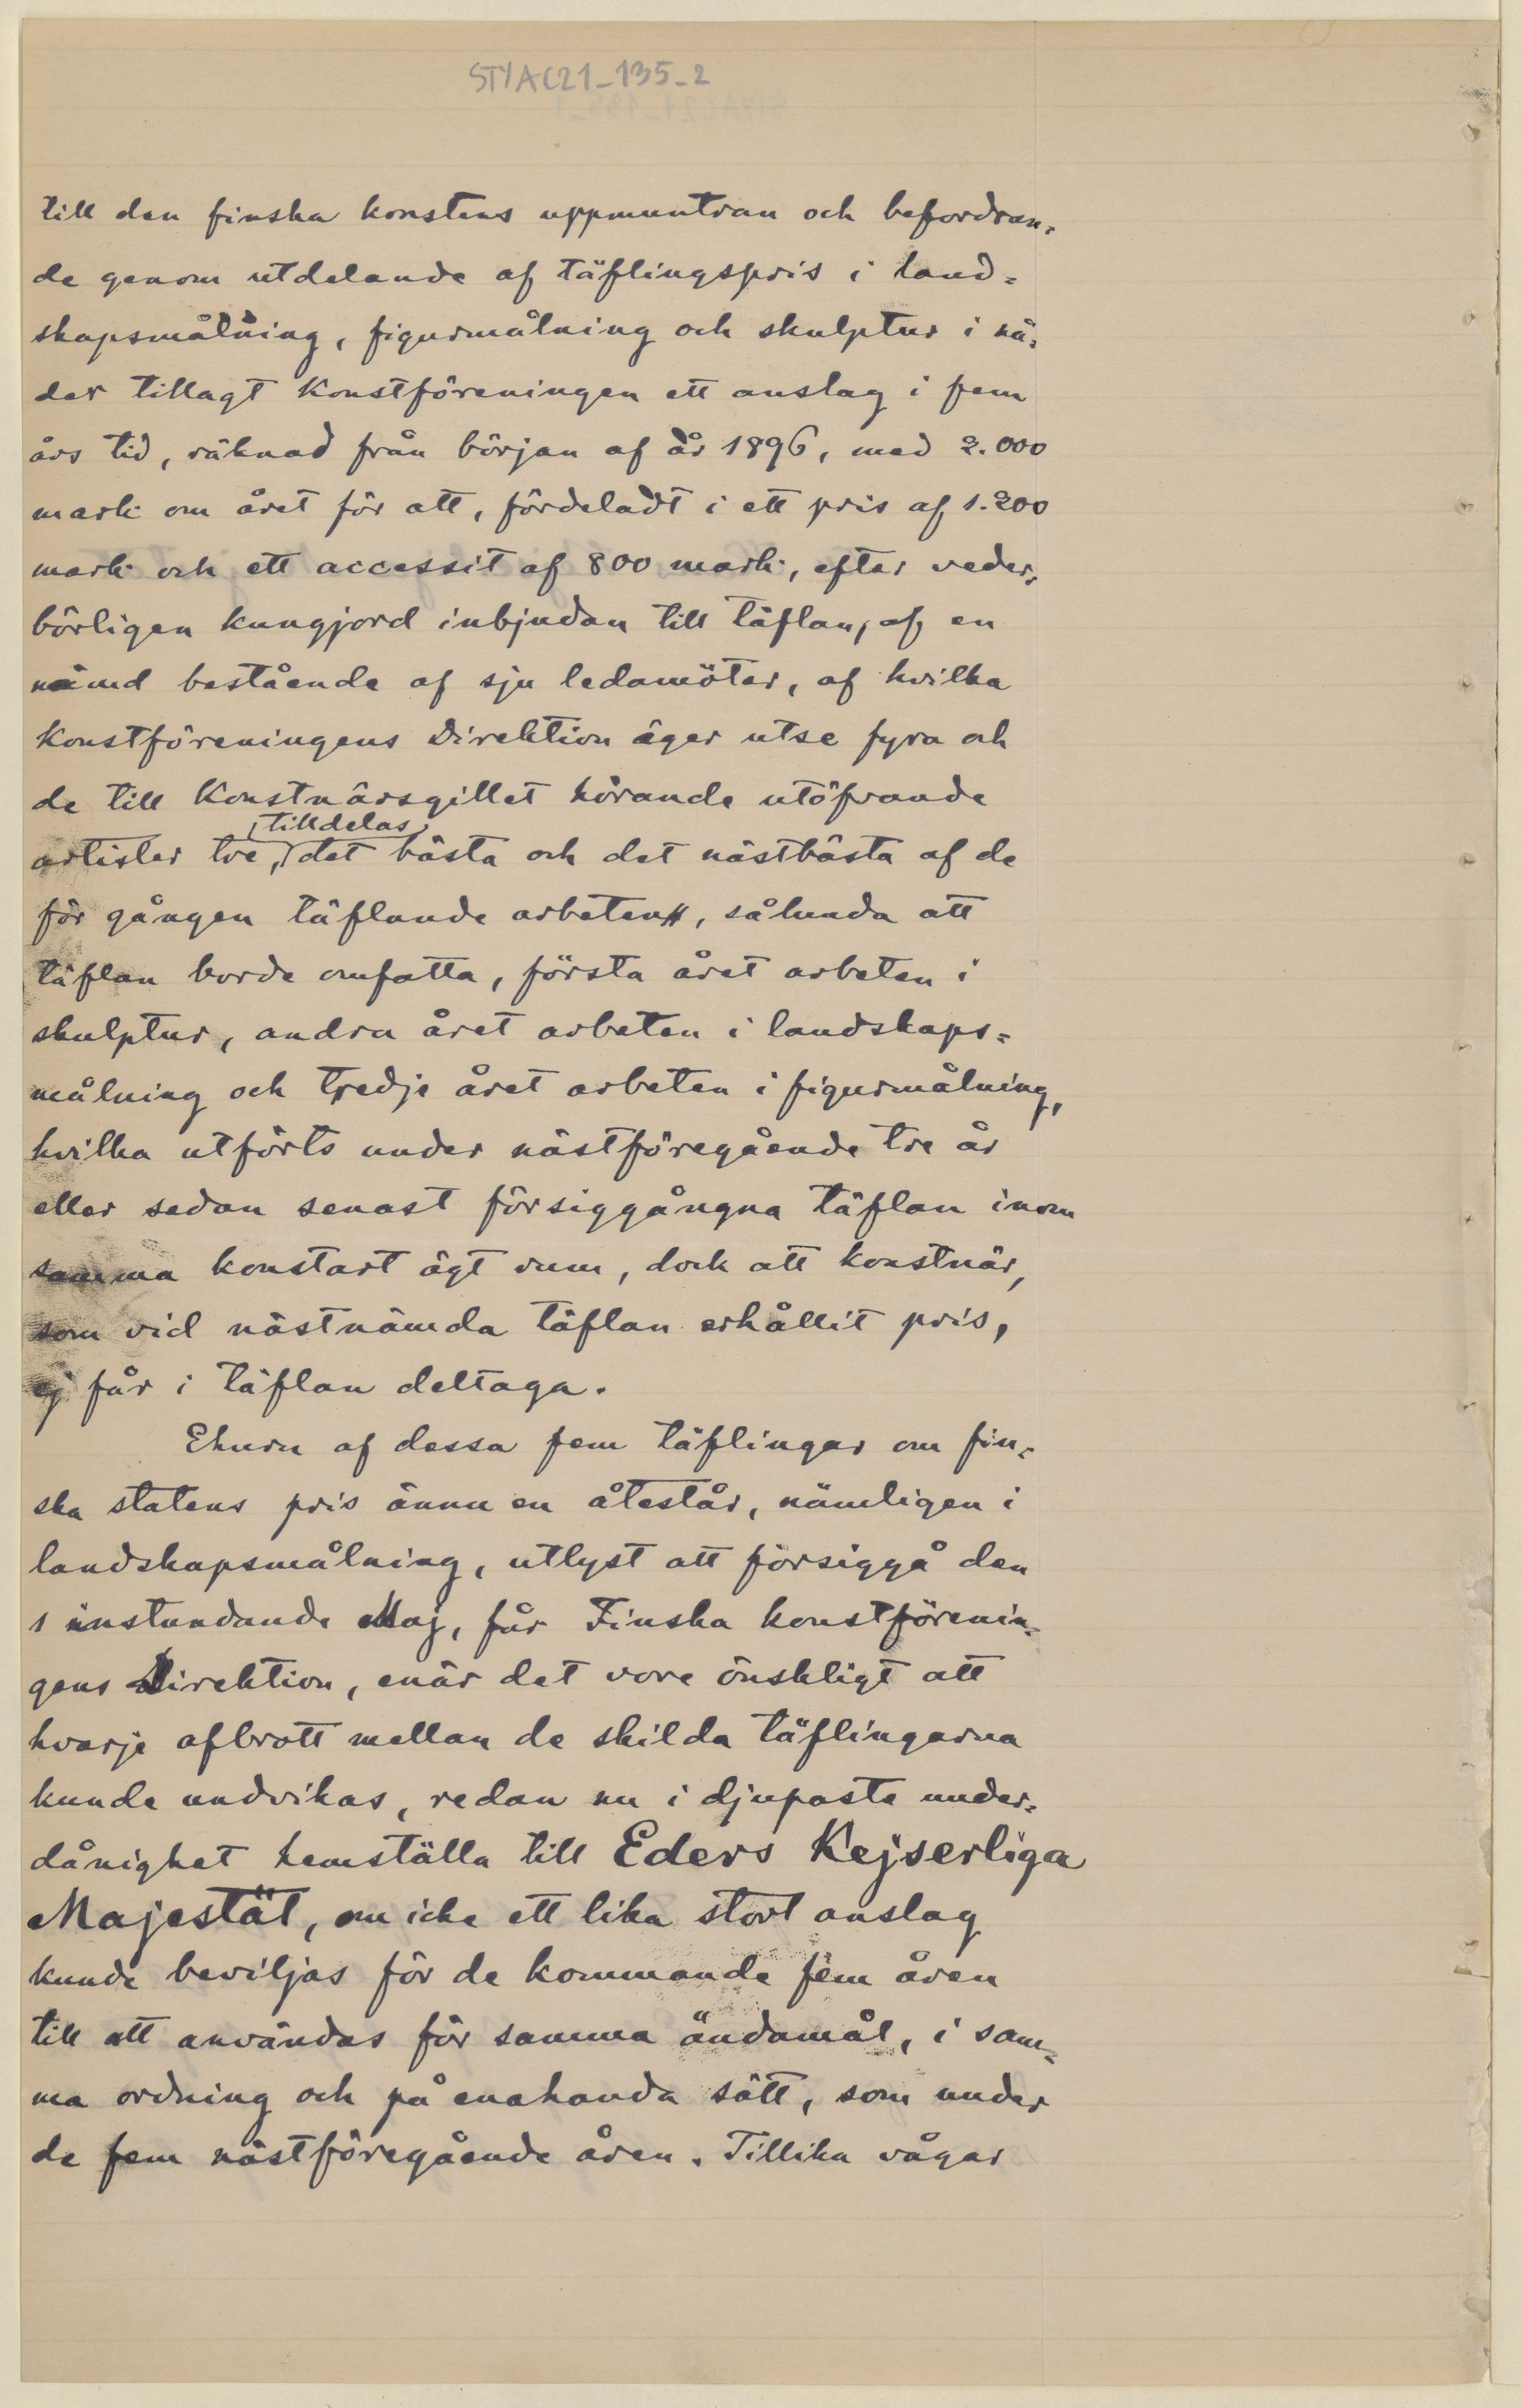 STYAC21_135_2
till den finska konstens uppmuntran och befordran=
de genom utdelande af täflingspris i land=
skapsmålning, figurmålning och skulptur i nå=
der tillagt Konstföreningen ett anslag i fem
års tid, räknad från början af år 1896, med 2.000
mark om året för att, fördeladt i ett pris af 1.200
mark och ett accessit af 800 mark, efter veder=
börligen kungjord inbjudan till täflan, af en
nämd bestående af sju ledamöter, af hvilka
Konstföreningens Direktion äger utse fyra och
de till Konstnärsgillet hörande utöfvande
tilldelas
artister tre, det bästa och det nästbästa af de
för gången täflande arbeten, sålunda att
täflan borde omfatta, första året arbeten i
skulptur, andra året arbeten i landskaps=
målning och tredje året arbeten i figurmålning,
hvilka utförts under nästföregående tre år
eller sedan senast försiggångna täflan inom
samma konstart ägt rum, dock att konstnär,
som vid nästnämda täflan erhållit pris,
ej får i täflan deltaga.
Ehuru af dessa fem täflingar om fin=
ska statens pris ännu en återstår, nämligen i
landskapsmålning, utlyst att försiggå den
1 instundande Maj, får Finska konstförenin=
gens Direktion, enär det vore önskligt att
hvarje afbrott mellan de skilda täflingarna
kunde undvikas, redan nu i djupaste under=
dånighet hemställa till Eders Kejserliga
Majestät, om icke ett lika stort anslag
kunde beviljas för de kommande fem åren
till att användas för samma ändamål, i sam=
ma ordning och på enahanda sätt, som under
de fem nästföregående åren. Tillika vågar